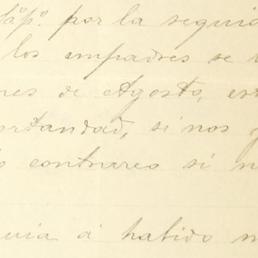 por la segui
los empadres se
nes de Agosto, es
ortandad, si nos
contrareo si n
uia á habido m